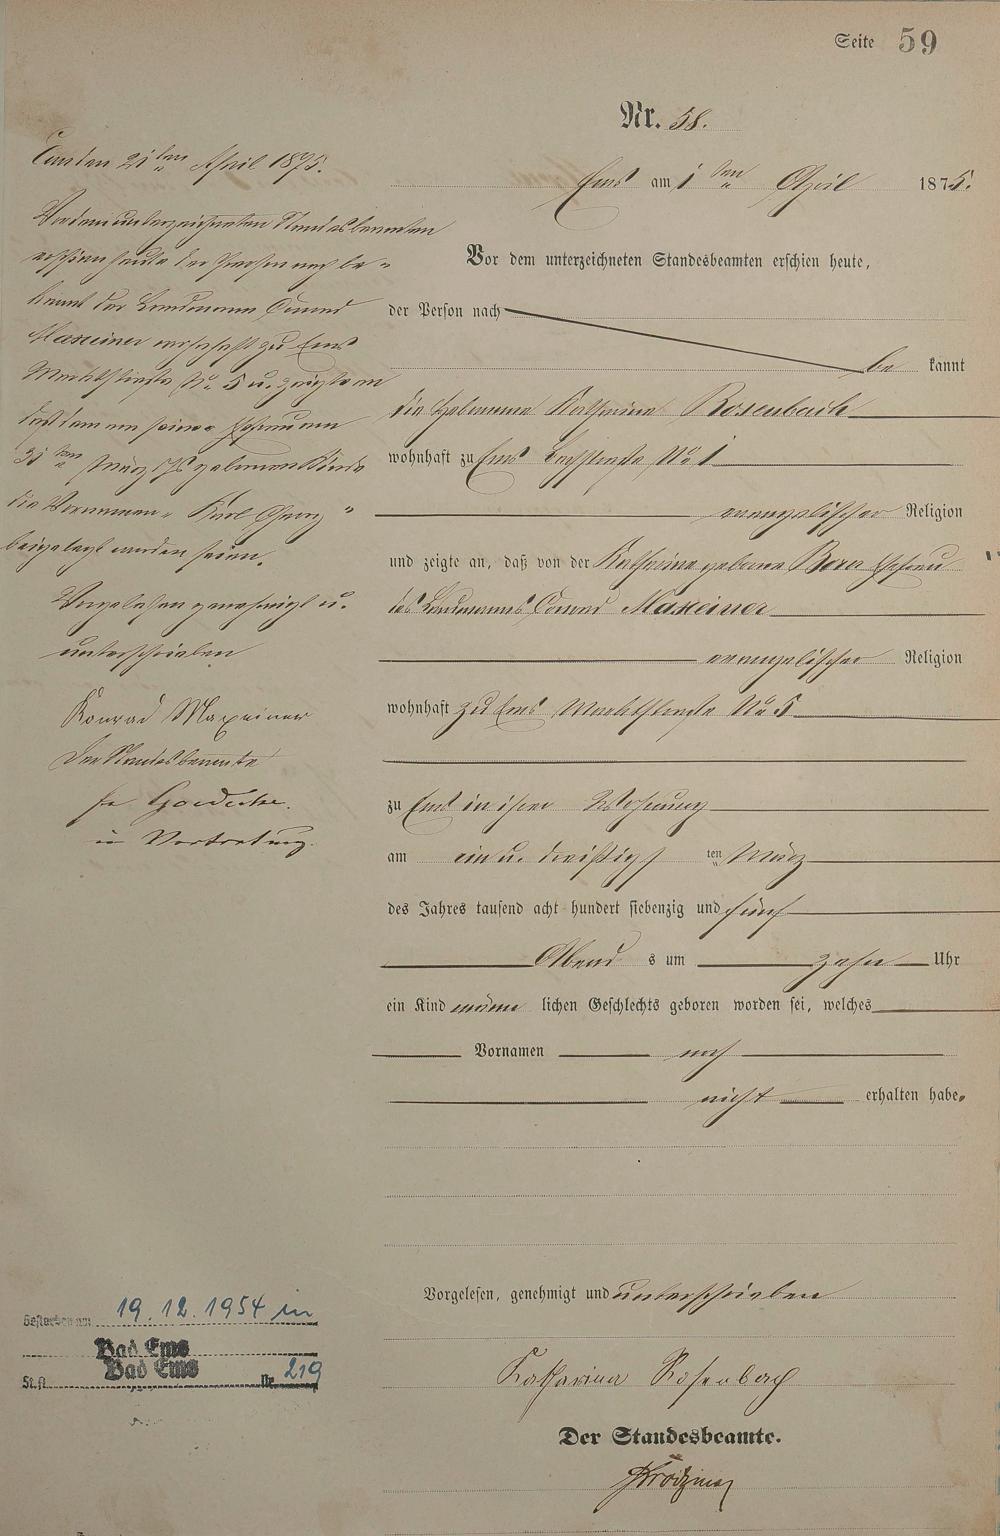 Seite 59
Nr. 58.
Ems am 1 ten April 1875.
Vor dem unterzeichneten Standesbeamten erschien heute,
der Person nach
be kannt
die Hebamme Katharina Rosenbach
wohnhaft zu Ems No 1
evangelischer Religion
und zeigte an, daß von der Katharina geborene Ehefrau
des Conrad Maxeiner
evangelischer Religion
wohnhaft zu Ems Marktstraße No 5
zu Ems in ihrer Wohnung
am ein u. dreißigs ten März
des Jahres tausend acht hundert siebenzig und fünf
Abend s um zehn Uhr
ein Kind männ lichen Geschlechts geboren worden sei, welches
Vornamen noch
nicht erhalten habe.
Vorgelesen, genehmigt und unterschrieben
Katharina Rosenbach
Der Standesbeamte.
Ems den 21ten April 1875.
Vor dem unterzeichneten Standesbeamten
erschien heute der Person nach be-
kannt der Conrad
Maxeiner wohnhaft zu Ems
Marktstraße No. 5 u. zeigte an
daß dem von seiner Ehefrau am
31ten März geborenen Kinde
die Vornamen "Karl Georg"
beigelegt worden seien.
Vorgelesen genehmigt u.
unterschrieben
Konrad Maxeiner
Der Standesbeamte
in Vertretung.
Gestorben am 19.12.1954 in
Bad Ems
Bad Ems
St.A. Nr. 219